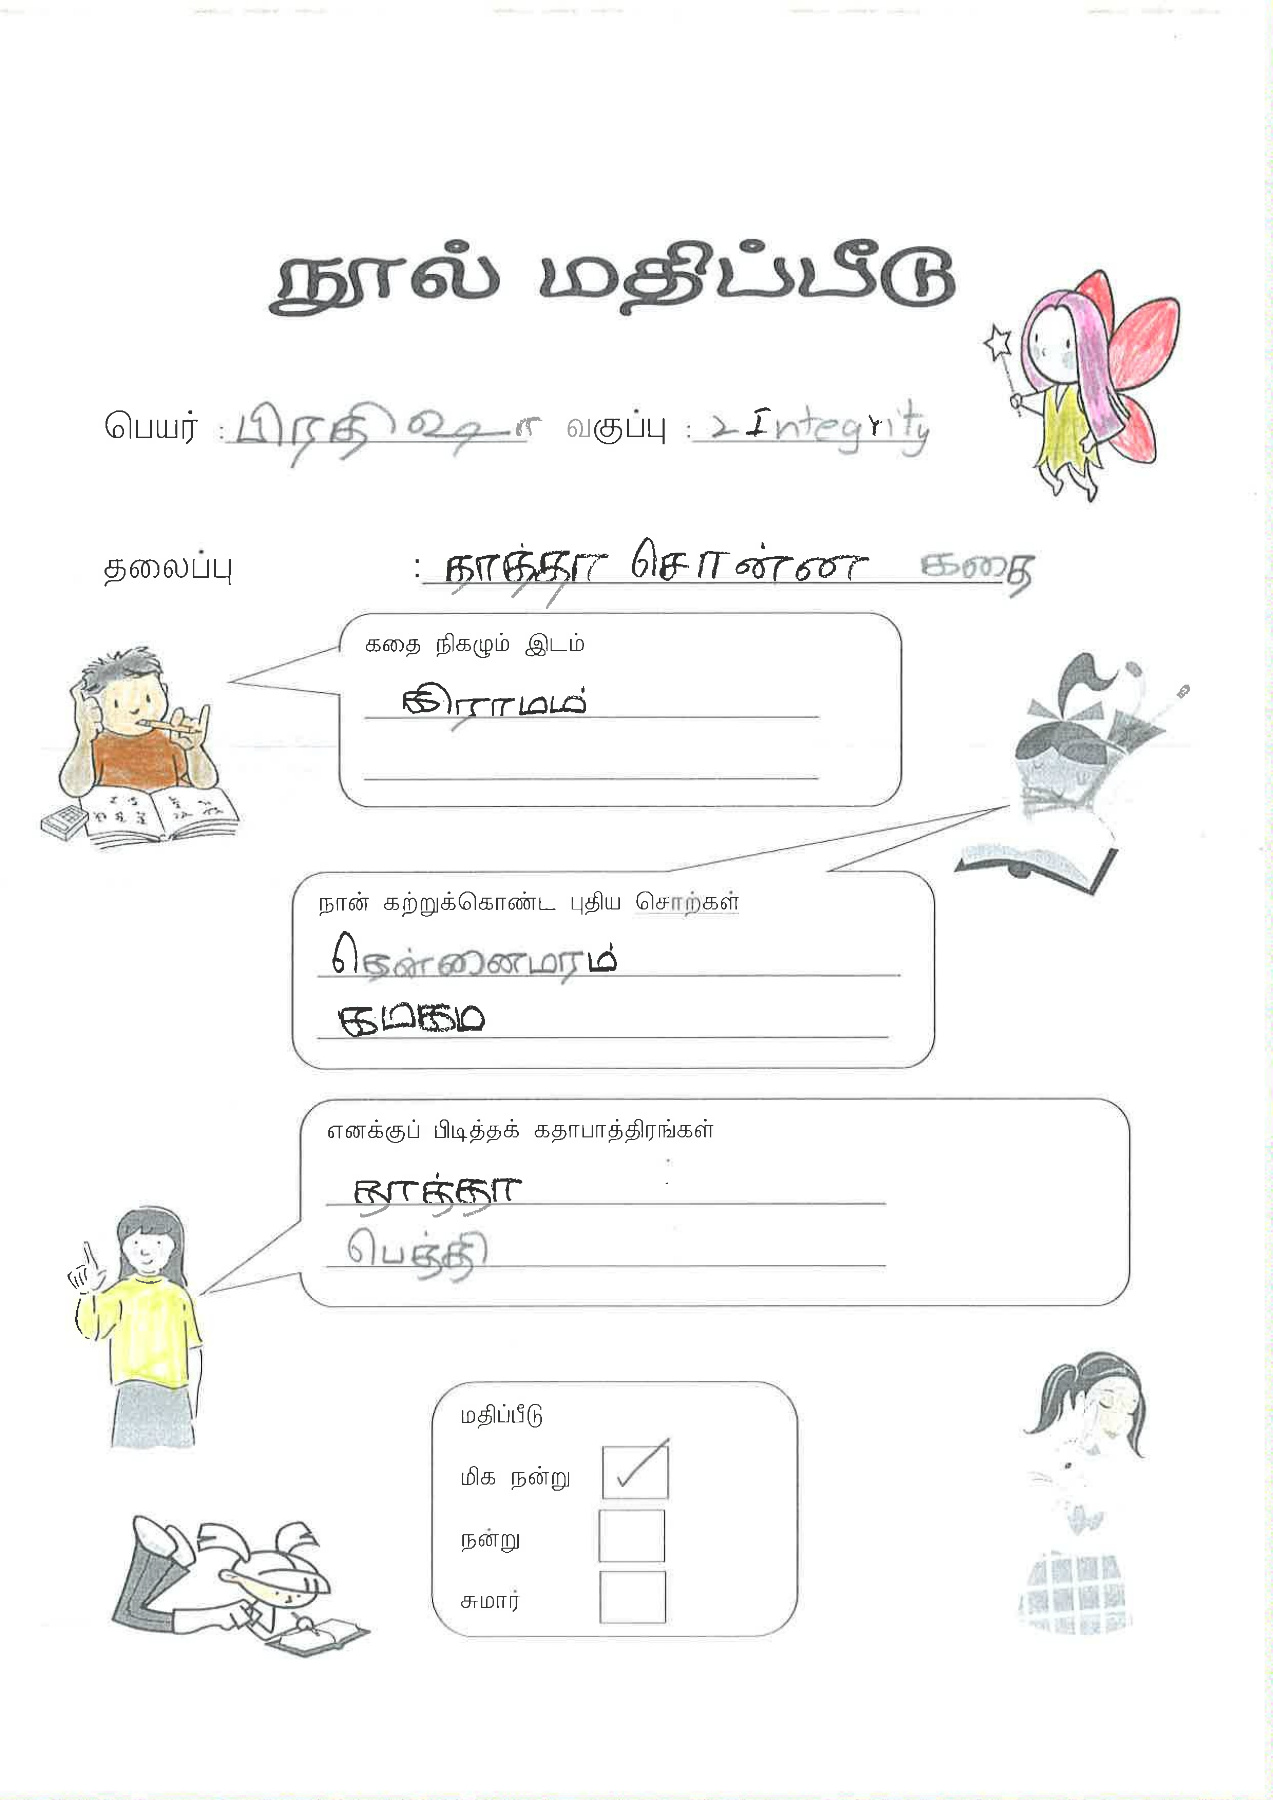 நூல் மதிப்பீடு
பெயர் : பிரதிஷா வகுப்பு : 2 Integrity
தலைப்பு : தாத்தா சொன்ன கதை
கதை நிகழும் இடம்
கிராமம்
நான் கற்றுக்கொண்ட புதிய சொற்கள்
தென்னைமரம்
கமகம
எனக்குப் பிடித்தக் கதாபாத்திரங்கள்
தாத்தா
பெத்தி
மதிப்பீடு
மிக நன்று
நன்று
சுமார்